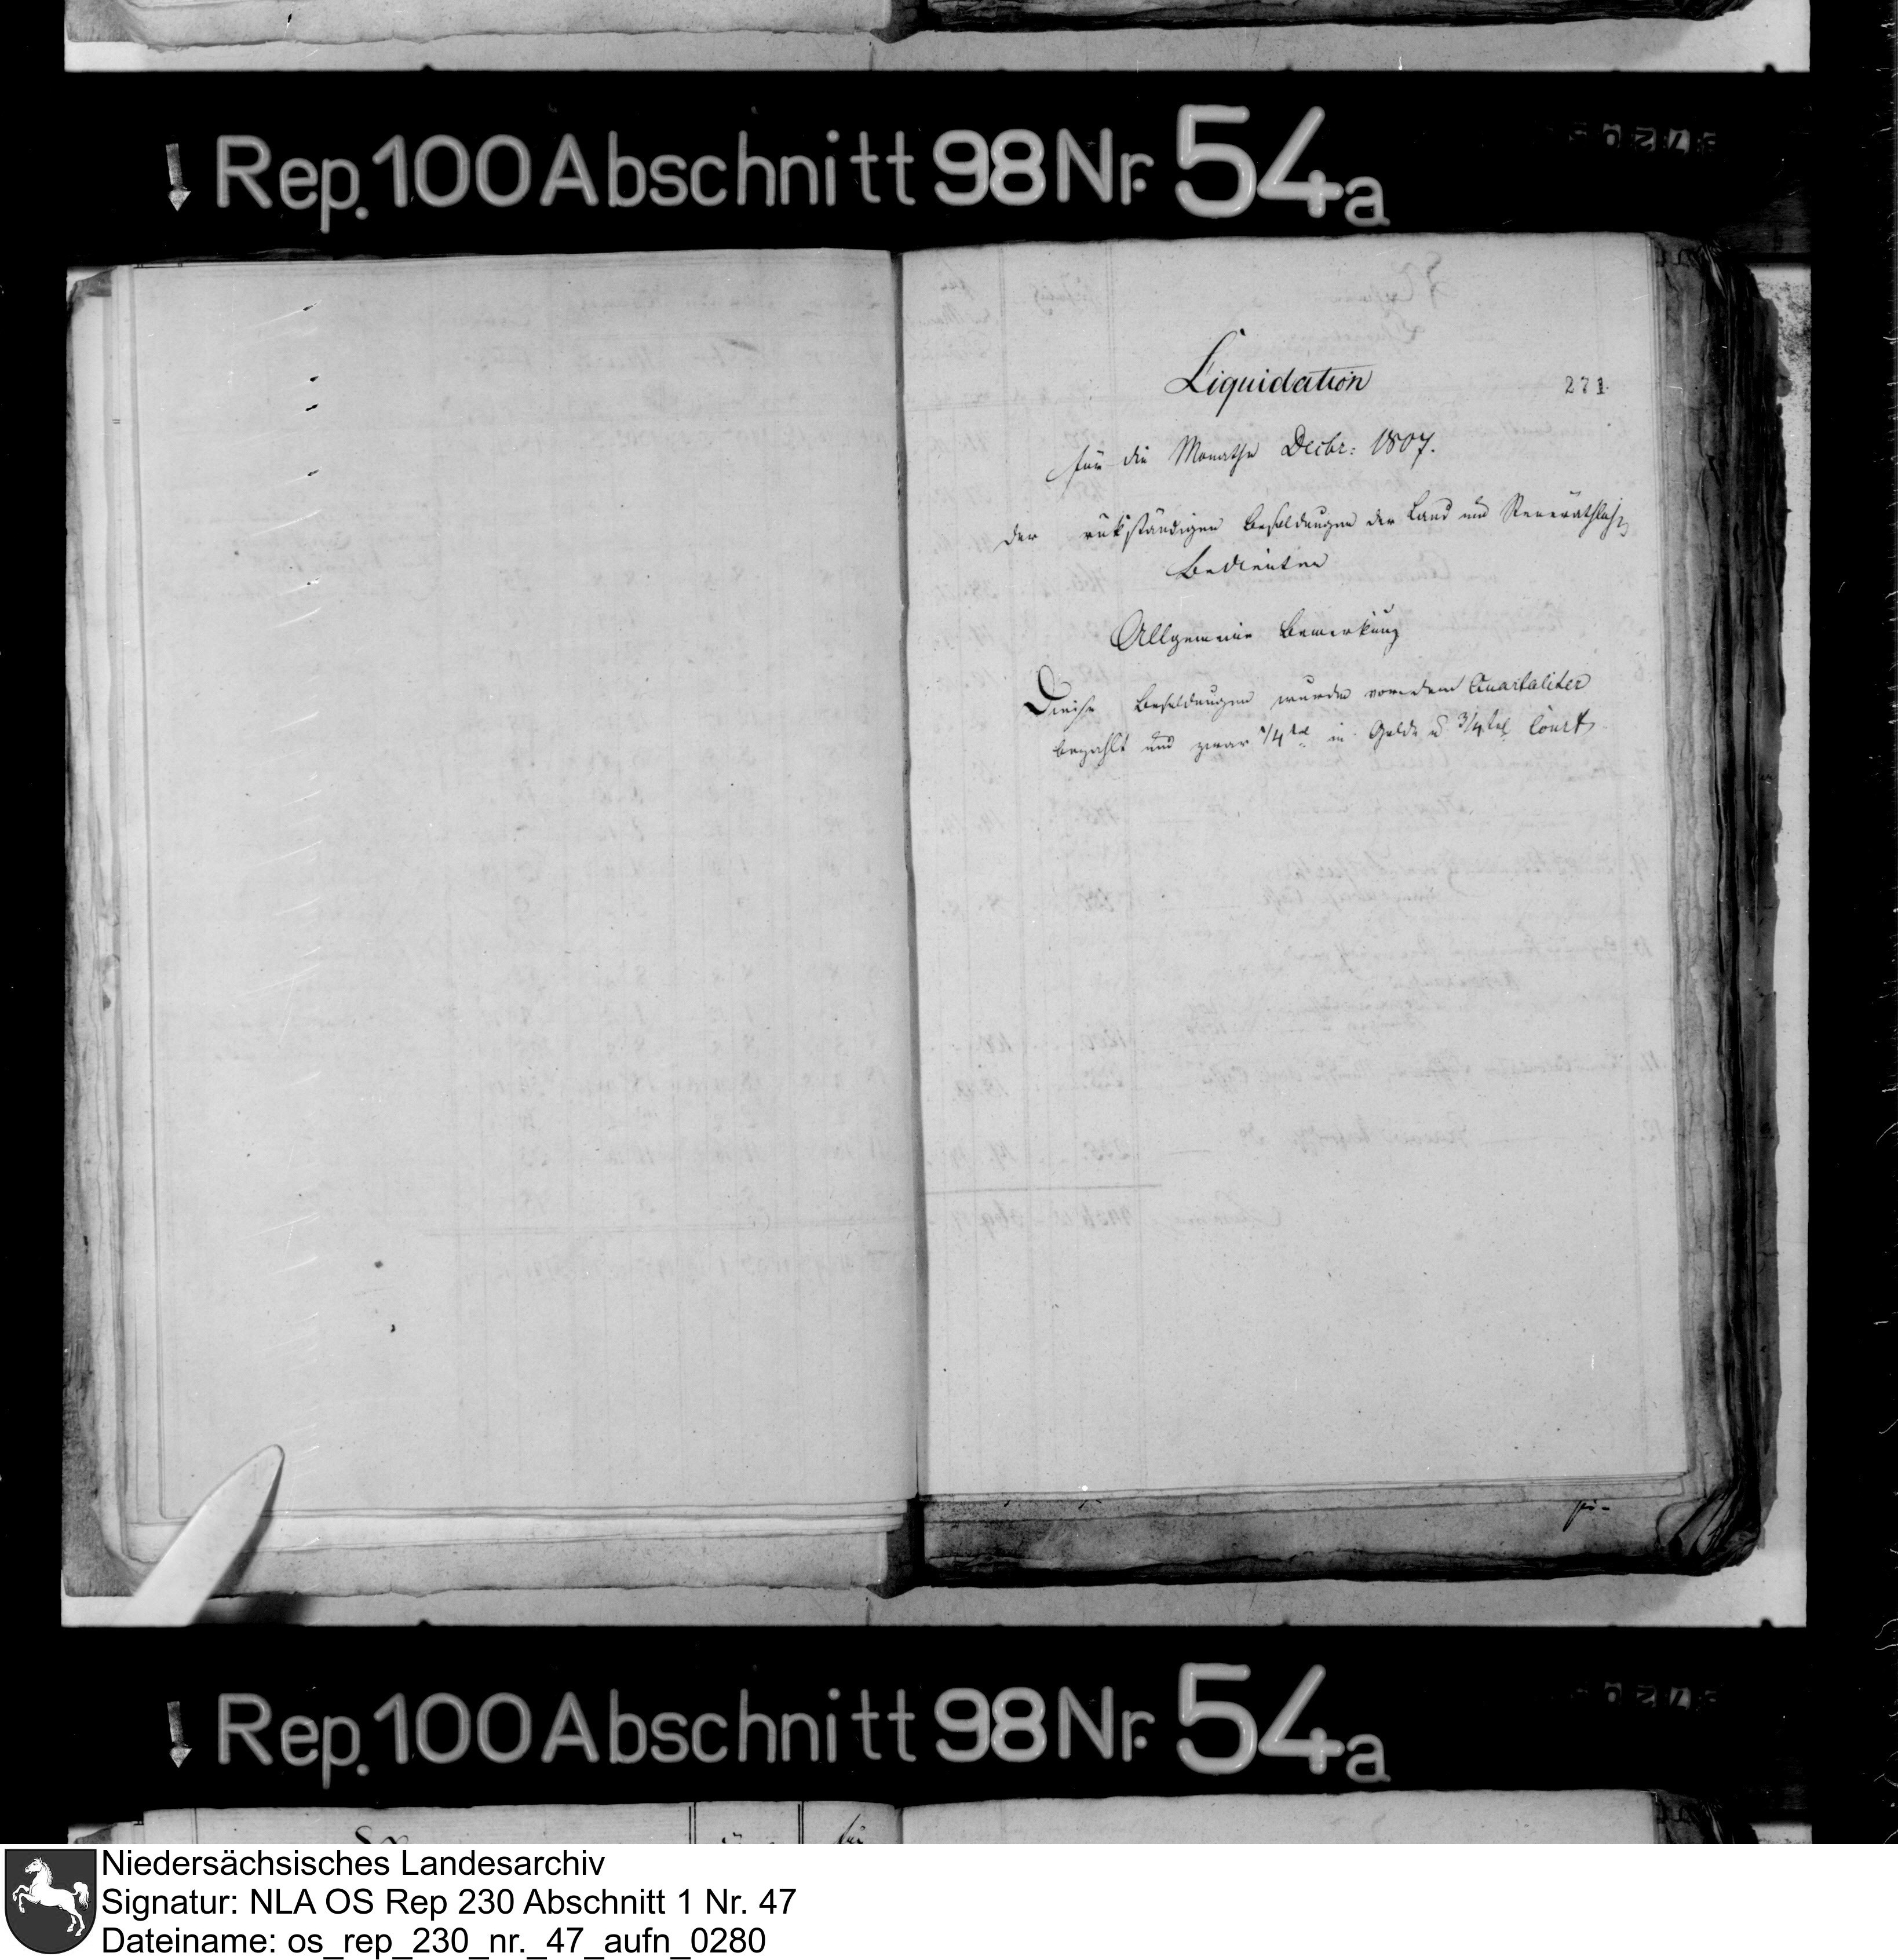 Rep. 100 Abschnitt 98 Nr. 54a
Liquidation
271
für die Monathe Decbr: 1807.
der rükständigen Besoldungen der Land und
Bedienten
Allgemeine Bemerkung
Diese Besoldungen wurden vordem Quartaliter
bezahlt und zwar 1/4tel in Golde u 3/4tel Court
Rep. 100 Abschnitt 98 Nr. 54a
Niedersächsisches Landesarchiv
Signatur: NLA OS Rep 230 Abschnitt 1 Nr. 47
Dateiname: os_rep_230_nr._47_aufn_0280